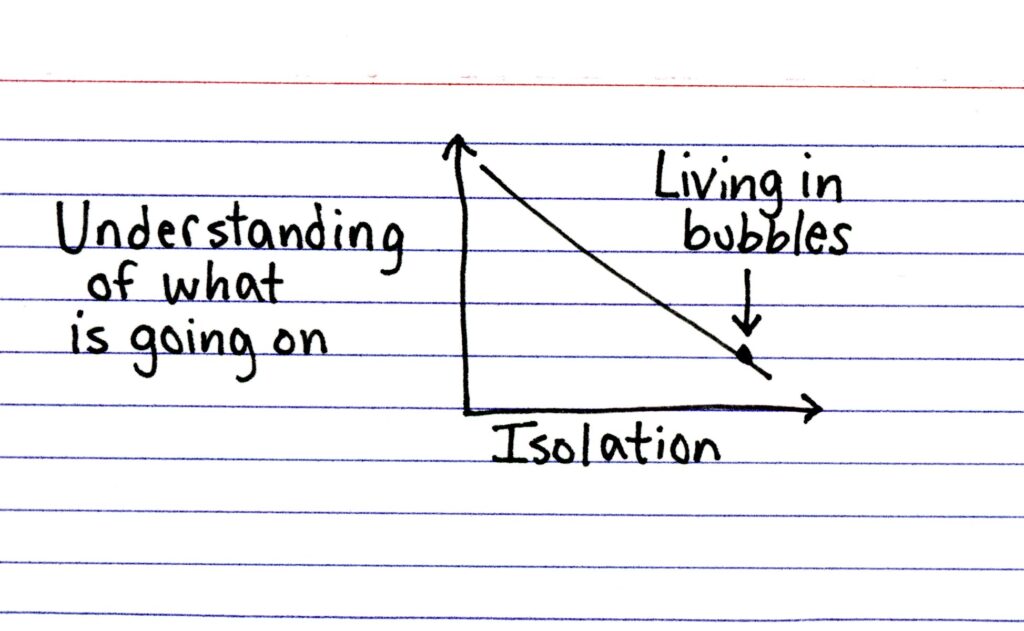 Living in
bubbles
Understanding
of what
is going on
Isolation